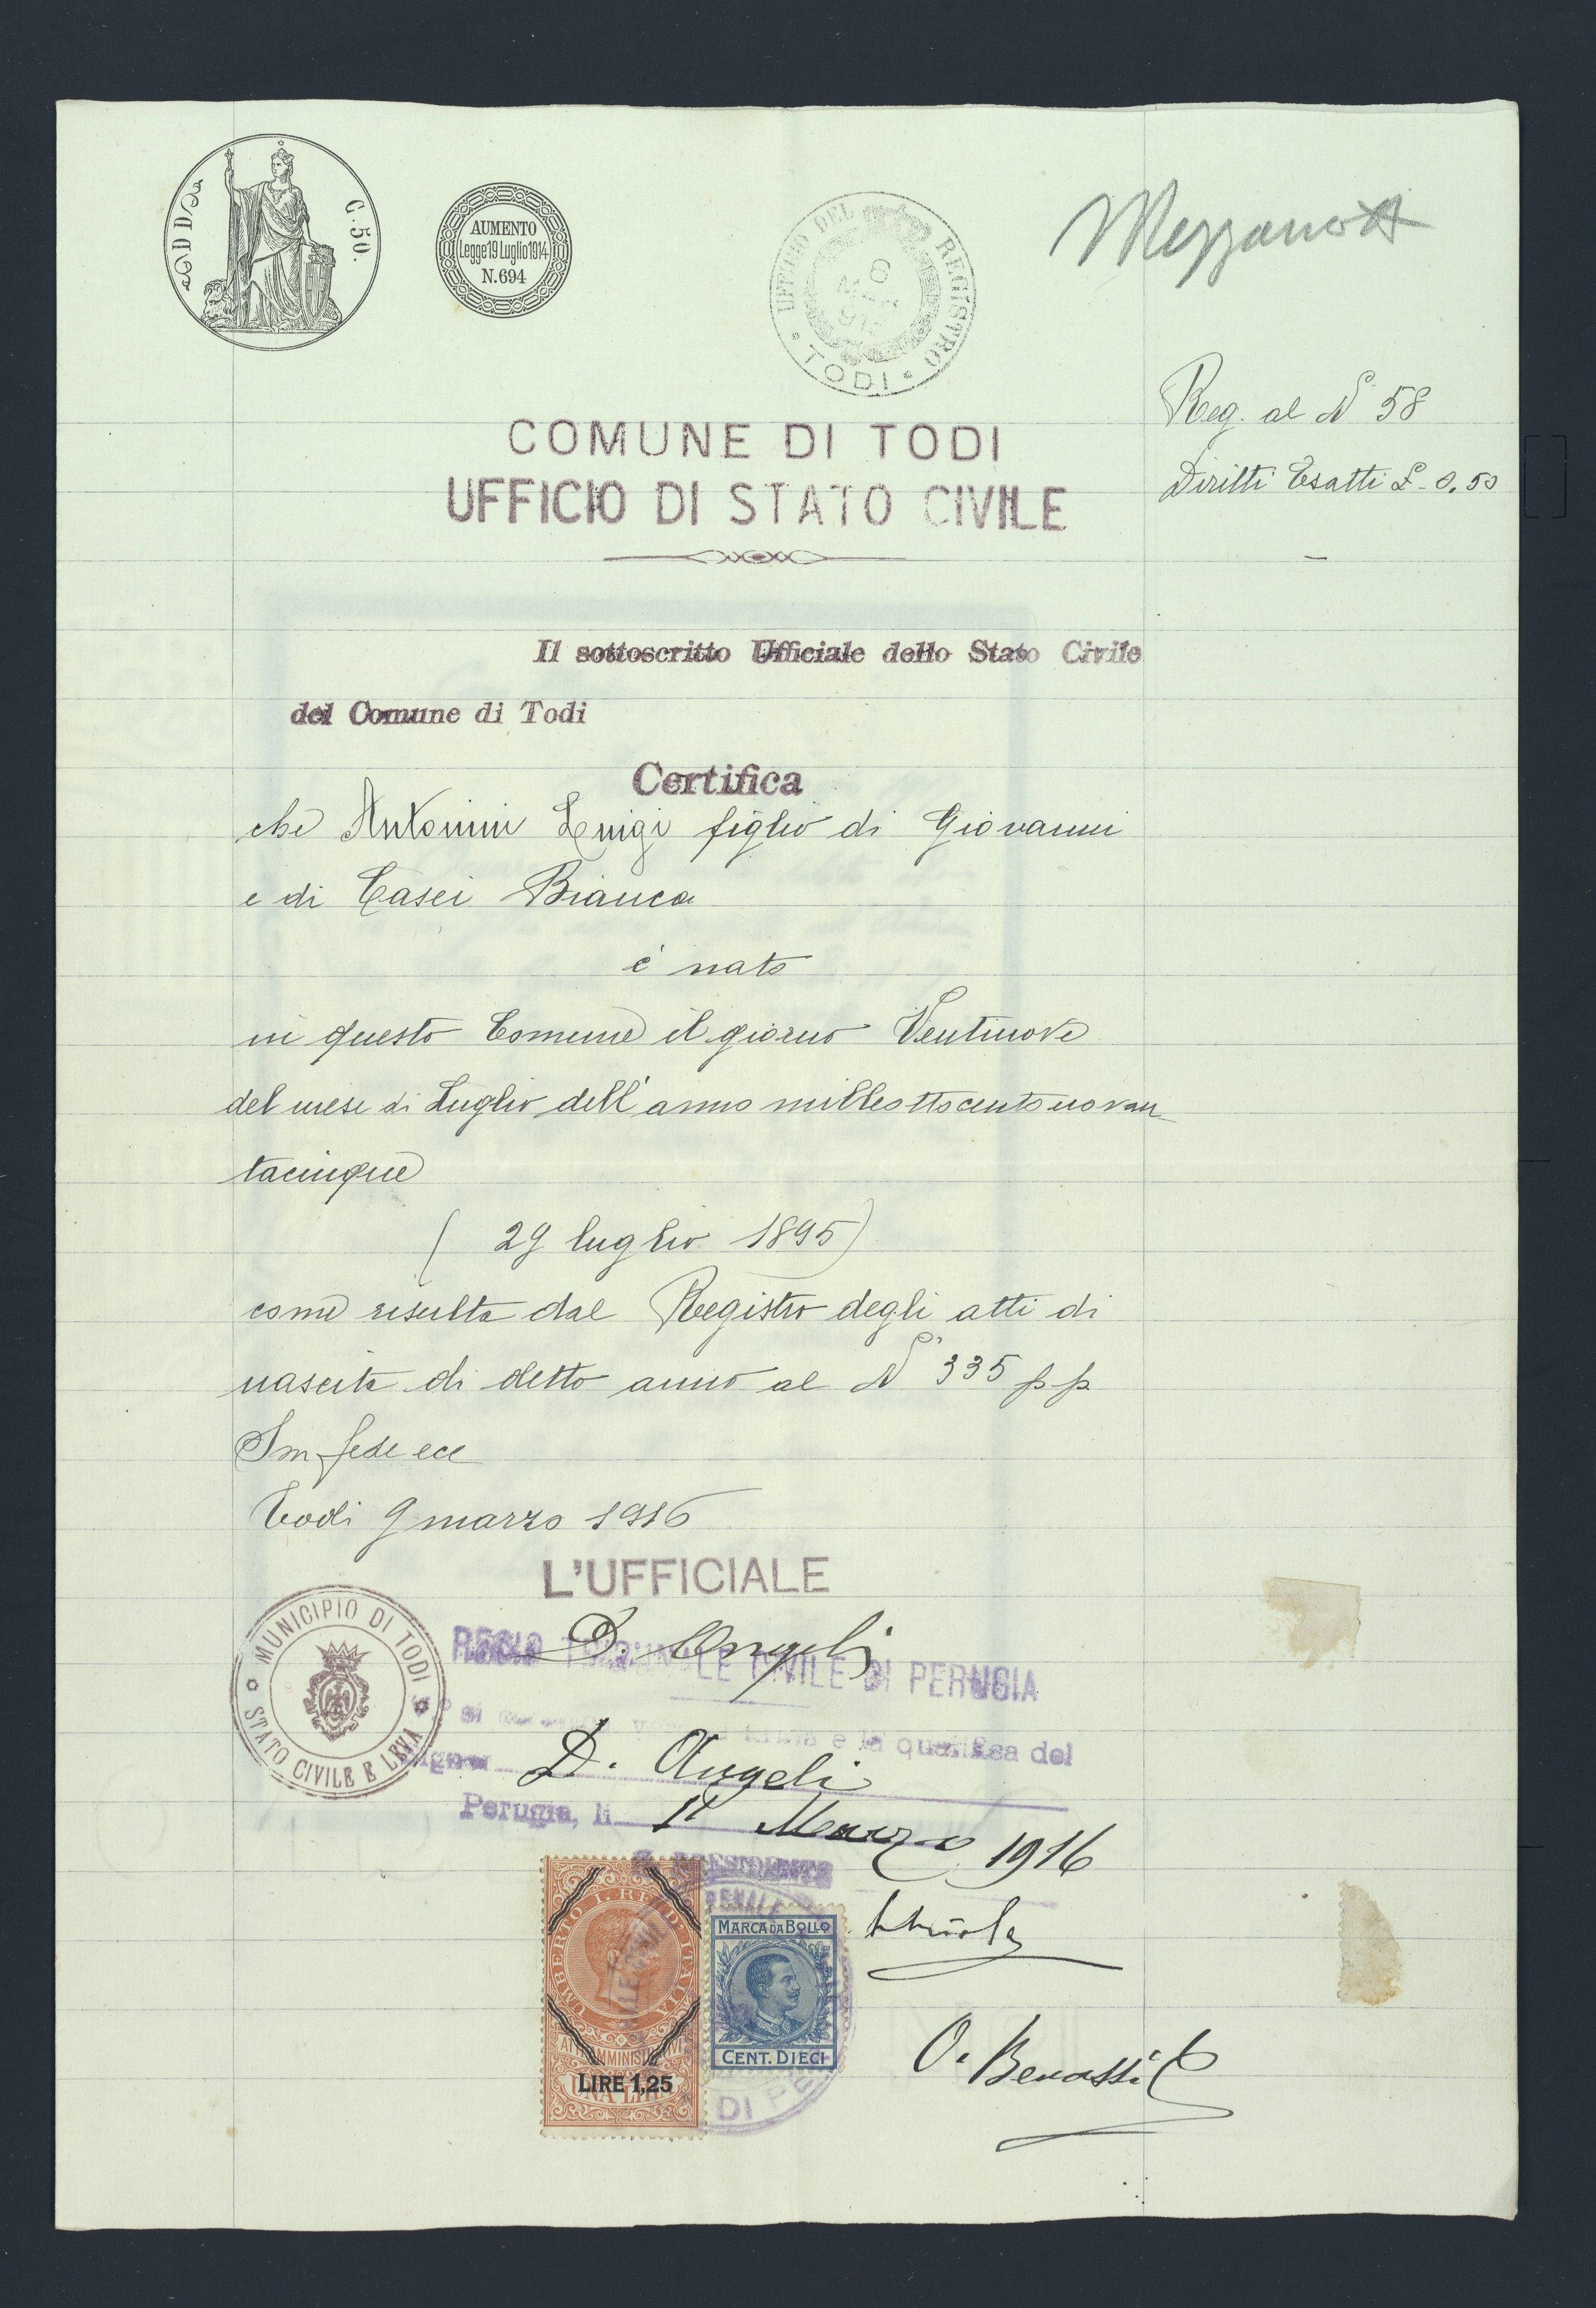 C. 50.
AUMENTO
Legge 19 Luglio 1914
N. 694
UFFICIO DEL REGISTRO
TODI
Mezzanott
Reg. al N° 58
Diritti Esatti £. 0.50
COMUNE DI TODI
UFFICIO DI STATO CIVILE
Il sottoscritto Ufficiale dello Stato Civile
del Comune di Todi
Certifica
che Antonini Luigi figlio di Giovanni
e di Casei Bianca
è nato
in questo Comune il giorno Ventinove
del mese di Luglio dell'anno milleottocentonovan
tacinque
( 29 luglio 1895)
come risulta dal Registro degli atti di
nascita di detto anno al N° 335 p. p.
In fede ecc
Todi 9 marzo 1916
L'UFFICIALE
D. Angeli
MUNICIPIO DI TODI
STATO CIVILE E LEVA
REGIO TRIBUNALE CIVILE DI PERUGIA
e la qualifica del
Signor D. Angeli
Perugia, li 11 Marzo 1916
IL PRESIDENTE
PENALE
UMBERTO I. RE D'ITALIA
ATTI AMMINISTRATIVI
LIRE 1,25
UNA LIRA
MARCA DA BOLLO
CENT. DIECI
DI PE
O. Benassi